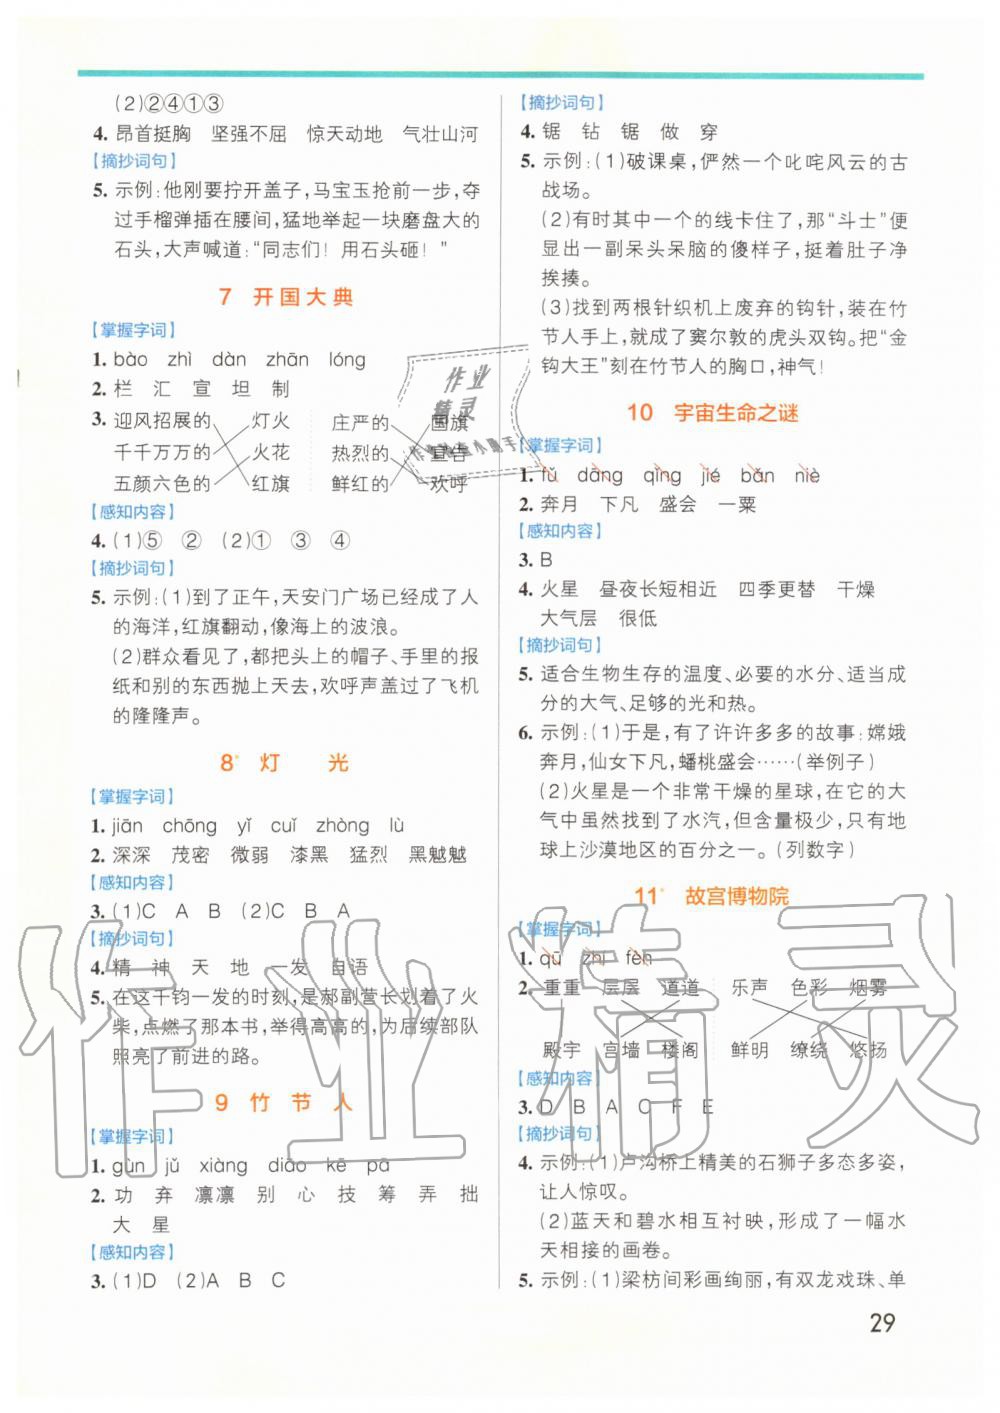 (2)②④①③
4. 昂首挺胸 坚强不屈 惊天动地 气壮山河
【摘抄词句】
5. 示例:他刚要拧开盖子,马宝玉抢前一步,夺
过手榴弹插在腰间,猛地举起一块磨盘大的
石头,大声喊道:“同志们!用石头砸!”
7 开国大典
【掌握字词】
1. bào zhì dàn zhān lóng
2. 栏 汇 宣 坦 制
3. 迎风招展的 灯火 庄严的 国旗
千千万万的 火花 热烈的 宣告
五颜六色的 红旗 鲜红的 欢呼
【感知内容】
4. (1)⑤ ② (2)① ③ ④
【摘抄词句】
5. 示例:(1)到了正午,天安门广场已经成了人
的海洋,红旗翻动,像海上的波浪。
(2)群众看见了,都把头上的帽子、手里的报
纸和别的东西抛上天去,欢呼声盖过了飞机
的隆隆声。
8* 灯 光
【掌握字词】
1. jiān chōng yǐ cuǐ zhòng lù
2. 深深 茂密 微弱 漆黑 猛烈 黑魆魆
【感知内容】
3. (1)C A B (2)C B A
【摘抄词句】
4. 精 神 天 地 一发 自语
5. 在这千钧一发的时刻,是郝副营长划着了火
柴,点燃了那本书,举得高高的,为后续部队
照亮了前进的路。
9 竹 节 人
【掌握字词】
1. gùn jǔ xiàng diāo kē pā
2. 功 弃 凛凛 别 心 技 筹 弄 拙
大 星
【感知内容】
3. (1)D (2)A B C
【摘抄词句】
4. 锯 钻 锯 做 穿
5. 示例:(1)破课桌,俨然一个叱咤风云的古
战场。
(2)有时其中一个的线卡住了,那“斗士”便
显出一副呆头呆脑的傻样子,挺着肚子净
挨揍。
(3)找到两根针织机上废弃的钩针,装在竹
节人手上,就成了窦尔敦的虎头双钩。把“金
钩大王”刻在竹节人的胸口,神气!
10 宇宙生命之谜
【掌握字词】
1. fǔ dāng qǐng jié bǎn niè
2. 奔月 下凡 盛会 一粟
【感知内容】
3. B
4. 火星 昼夜长短相近 四季更替 干燥
大气层 很低
【摘抄词句】
5. 适合生物生存的温度、必要的水分、适当成
分的大气、足够的光和热。
6. 示例:(1)于是,有了许许多多的故事:嫦娥
奔月,仙女下凡,蟠桃盛会……(举例子)
(2)火星是一个非常干燥的星球,在它的大
气中虽然找到了水汽,但含量极少,只有地
球上沙漠地区的百分之一。(列数字)
11* 故宫博物院
【掌握字词】
1. qū zhì fèn
2. 重重 层层 道道 乐声 色彩 烟雾
殿宇 宫墙 楼阁 鲜明 缭绕 悠扬
【感知内容】
3. D B A C F E
【摘抄词句】
4. 示例:(1)卢沟桥上精美的石狮子多态多姿,
让人惊叹。
(2)蓝天和碧水相互衬映,形成了一幅水
天相接的画卷。
5. 示例:(1)梁枋间彩画绚丽,有双龙戏珠、单
29
作业精灵
作业精灵